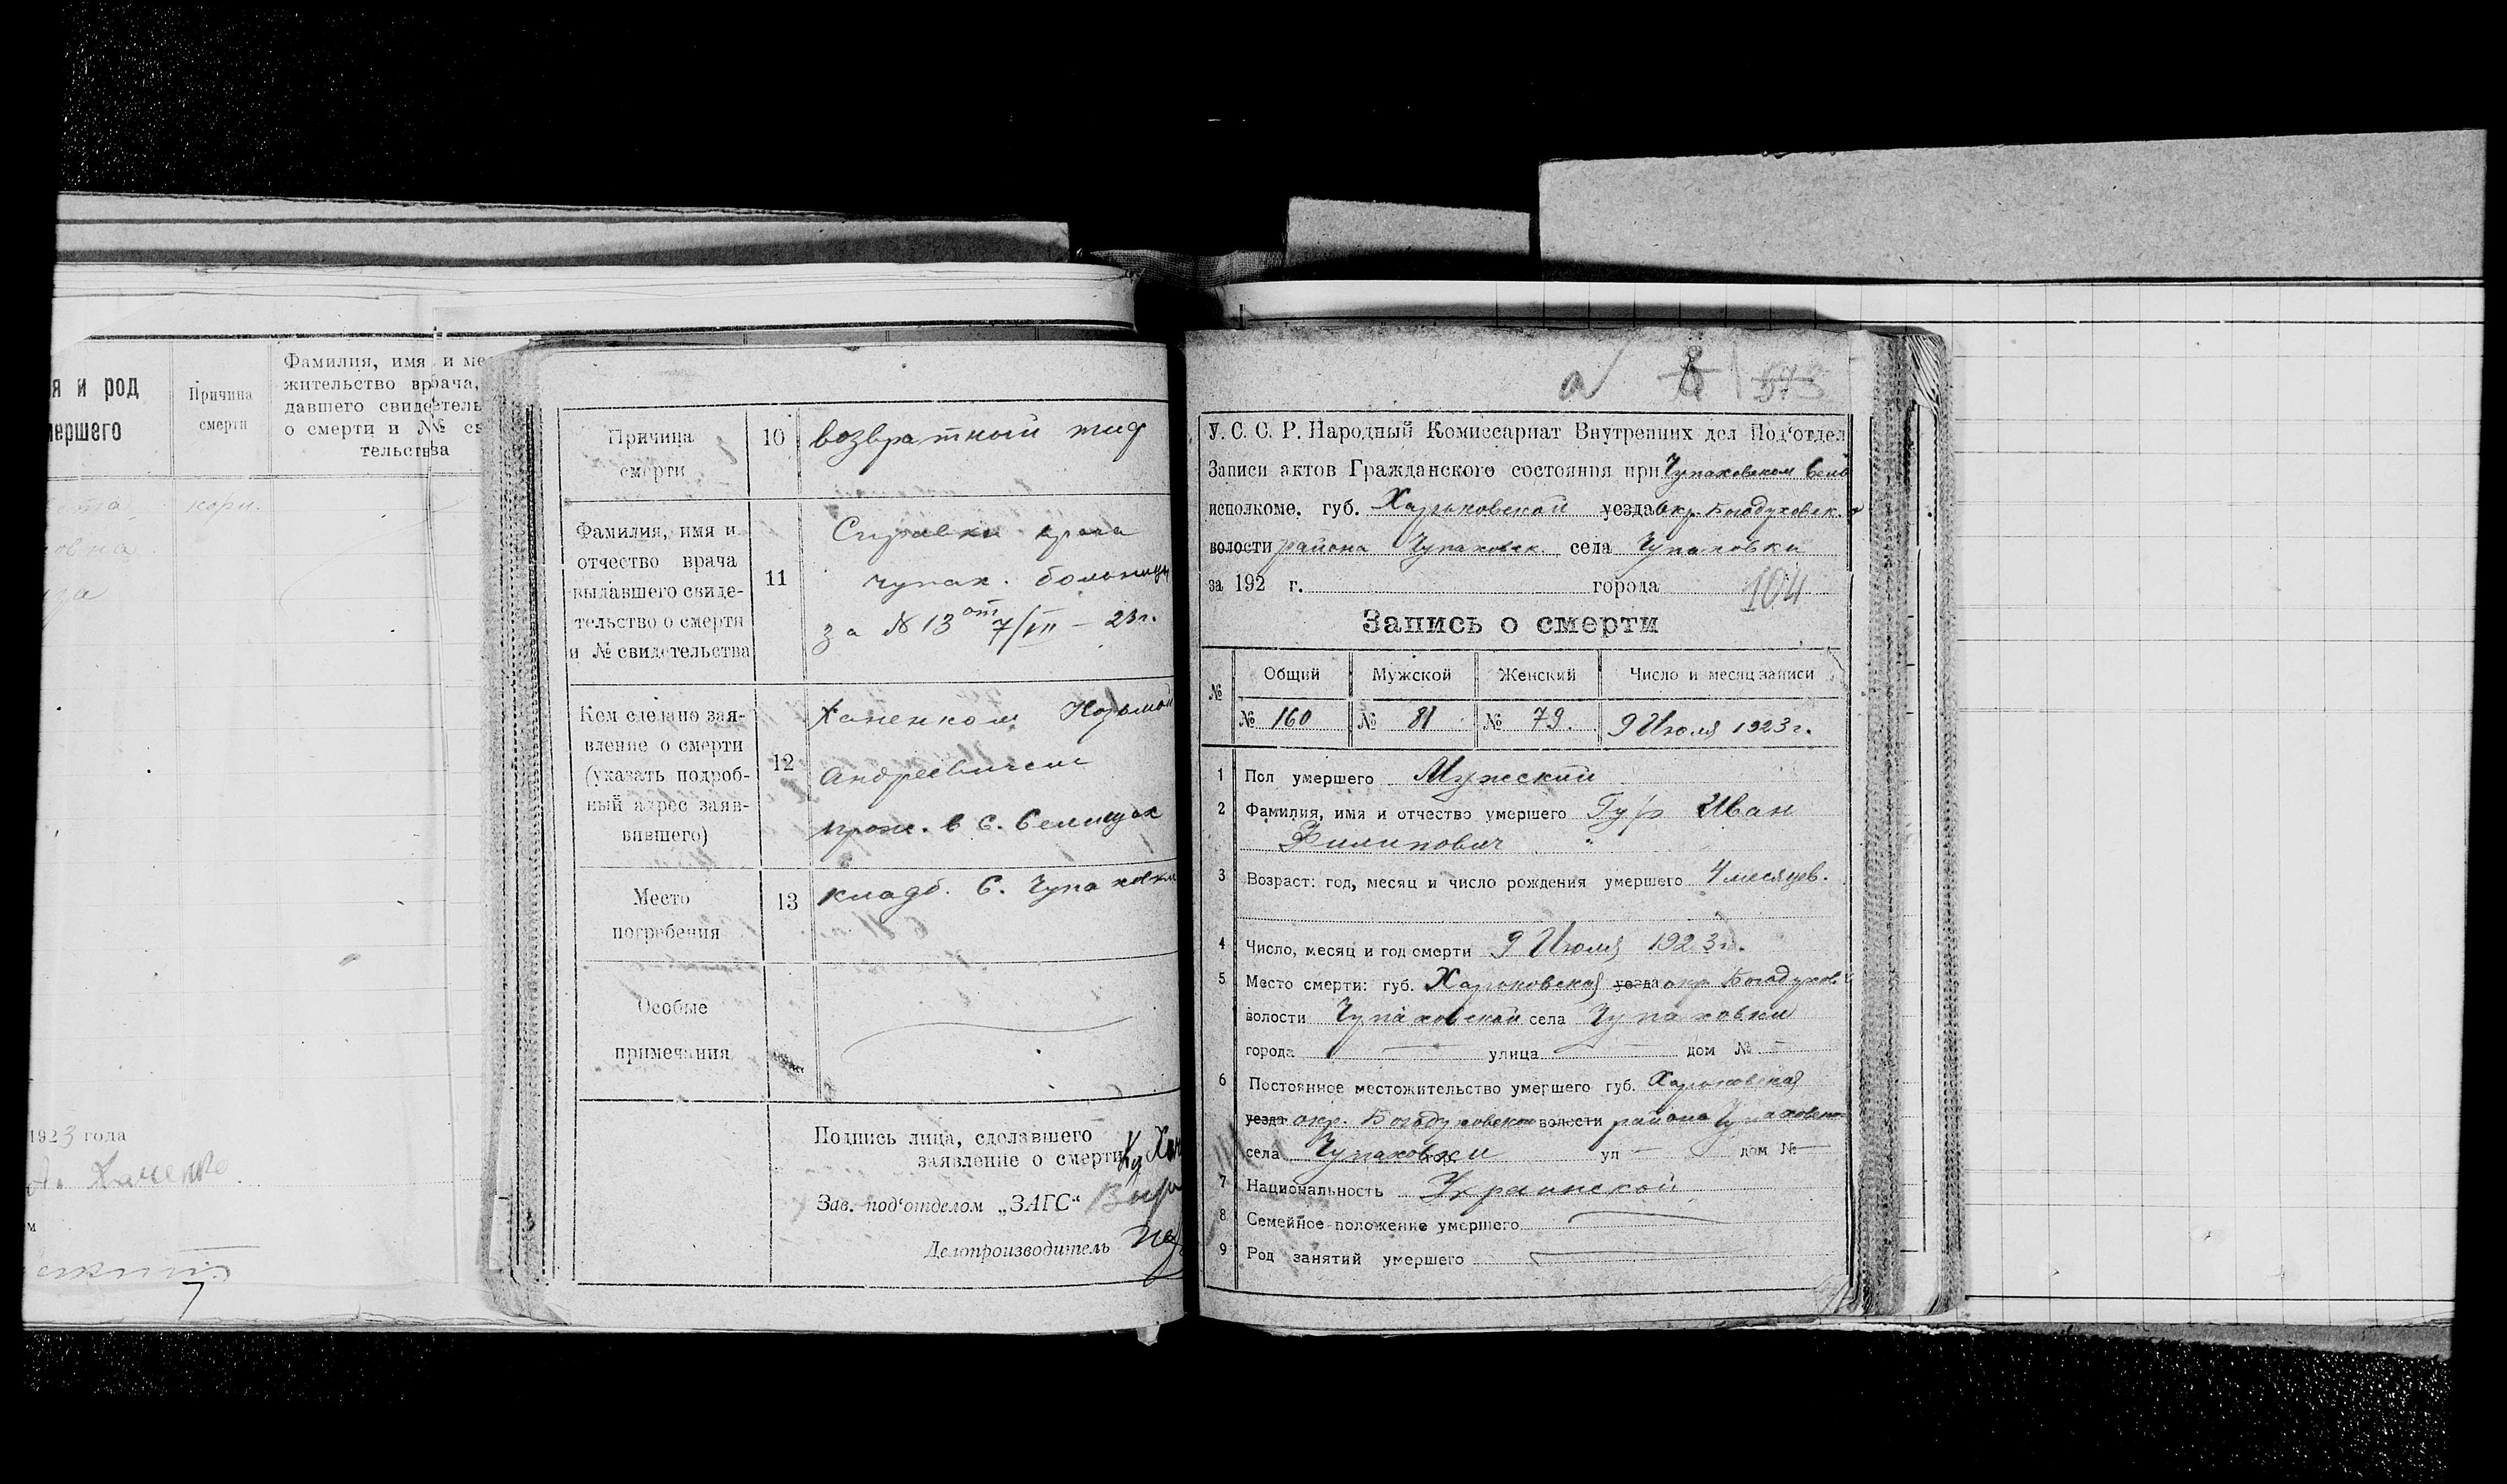 я и род
мершего
Причина
смерти
Фамилия, имя и ме
жительство врача,
давшего свидетель
о смерти и №№ св
тельства
корь.
овна
1923 года
Ханенко
Причина
смерти
10
возвратный тиф
Фамилия, имя и
отчество врача
выдавшего свиде-
тельство о смерти
и № свидетельства
11
Справка врача
чупах. больницы
за № 13 от 7/VII - 23 г.
Кем сделано зая-
вление о смерти
(указать подроб-
ный адрес заяв-
вившего)
12
Ханенком Козьмой
Андреевичем
прож. в с. Селищах
Место
погребения
13
кладб. С. Чупаховки
Особые
примечания
Подпись лица, сделавшего
заявление о смерти
Зав. под‘отделом „ЗАГС“
Делопроизводитель
573
У. С. С. Р. Народный Комиссариат Внутренних дел Под‘отдел
Записи актов Гражданского состояния при Чупаховском
исполкоме, губ. Харьковской уезда окр. Богодуховск.
волости района Чупаховск. села Чупаховки
за 192 г. города 104
Запись о смерти
№ Общий Мужской Женский Число и месяц записи
№ 160 № 81 № 79. 9 Июля 1923 г.
1 Пол умершего Мужский
2 Фамилия, имя и отчество умершего Гур Иван
Филипович
3 Возраст: год, месяц и число рождения умершего 4 месяцев.
4 Число, месяц и год смерти 9 Июля 1923 г.
5 Место смерти: губ. Харьковская уезда окр. Богодухов.
волости Чупаховской села Чупаховки
города — улица — дом № —
6 Постоянное местожительство умершего губ. Харьковская
уезда окр. Богодуховского волости района Чупаховско
села Чупаховки ул — дом № —
7 Национальность Украинской
8 Семейное положение умершего —
9 Род занятий умершего —